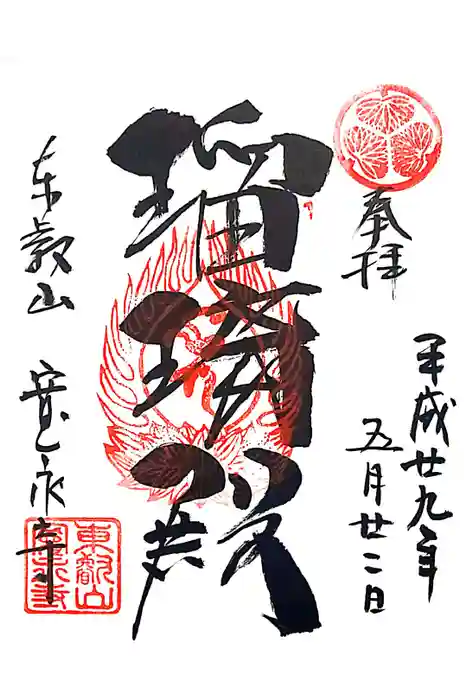 奉拝
平成廿九年
五月廿二日
瑠璃殿
东叡山 寛永寺
東叡山
寛永寺